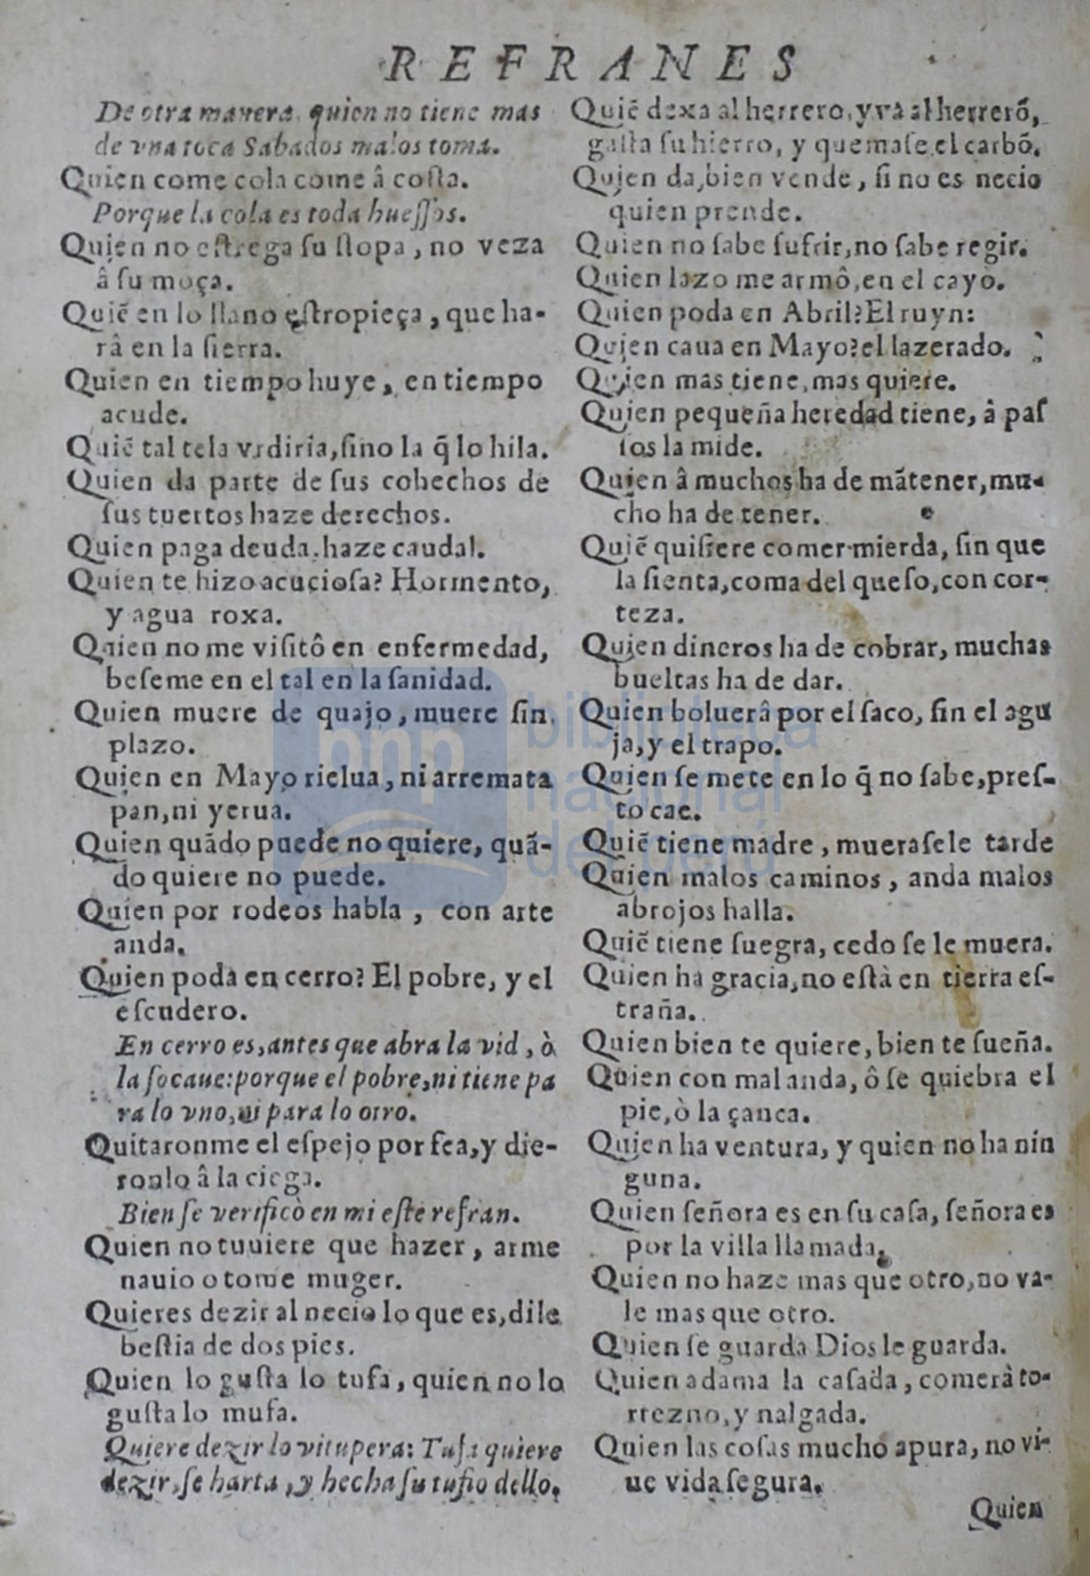 REFRANES
De otra manera, quien no tiene mas
de vna toca Sabados malos toma.
Quien come cola come â costa.
Porque la cola es toda huessos.
Quien no estrega su stopa, no veza
â su moça.
Quiẽ en lo llano estropieça, que ha-
râ en la sierra.
Quien en tiempo huye, en tiempo
acude.
Quiẽ tal tela vrdiria, sino la q̃ lo hila.
Quien da parte de sus cohechos de
sus tuertos haze derechos.
Quien paga deuda, haze caudal.
Quien te hizo acuciosa? Hormento,
y agua roxa.
Quien no me visitô en enfermedad,
beseme en el tal en la sanidad.
Quien muere de quajo, muere sin
plazo.
Quien en Mayo rielua, ni arremata
pan, ni yerua.
Quien quãdo puede no quiere, quã-
do quiere no puede.
Quien por rodeos habla, con arte
anda.
Quien poda en cerro? El pobre, y el
escudero.
En cerro es, antes que abra la vid, ò
la socaue: porque el pobre, ni tiene pa
ra lo vno, ni para lo otro.
Quitaronme el espejo por fea, y die-
ronlo â la ciega.
Bien se verificò en mi este refran.
Quien no tuuiere que hazer, arme
nauio o tome muger.
Quieres dezir al necio lo que es, dile
bestia de dos pies.
Quien lo gusta lo tufa, quien no lo
gusta lo mufa.
Quiere dezir lo vitupera: Tufa quiere
dezir, se harta, y hecha su tufio dello.
Quiẽ dexa al herrero, y va al herrerõ,
gasta su hierro, y quemase el carbõ.
Quien da, bien vende, si no es necio
quien prende.
Quien no sabe sufrir, no sabe regir.
Quien lazo me armô, en el cayo.
Quien poda en Abril? El ruyn:
Quien caua en Mayo? el lazerado.
Quien mas tiene, mas quiere.
Quien pequeña heredad tiene, â pas
sos la mide.
Quien â muchos ha de mãtener, mu-
cho ha de tener.
Quiẽ quisiere comer mierda, sin que
la sienta, coma del queso, con cor-
teza.
Quien dineros ha de cobrar, muchas
bueltas ha de dar.
Quien boluerâ por el saco, sin el agu
ja, y el trapo.
Quien se mete en lo q̃ no sabe, pres-
to cae.
Quiẽ tiene madre, muerasele tarde
Quien malos caminos, anda malos
abrojos halla.
Quiẽ tiene suegra, cedo se le muera.
Quien ha gracia, no està en tierra es-
traña.
Quien bien te quiere, bien te sueña.
Quien con mal anda, ô se quiebra el
pie, ò la çanca.
Quien ha ventura, y quien no ha nin
guna.
Quien señora es en su casa, señora es
por la villa llamada.
Quien no haze mas que otro, no va-
le mas que otro.
Quien se guarda Dios le guarda.
Quien adama la casada, comerà to-
rrezno, y nalgada.
Quien las cosas mucho apura, no vi-
ue vida segura.
Quien
bnp biblioteca
nacional
del perú